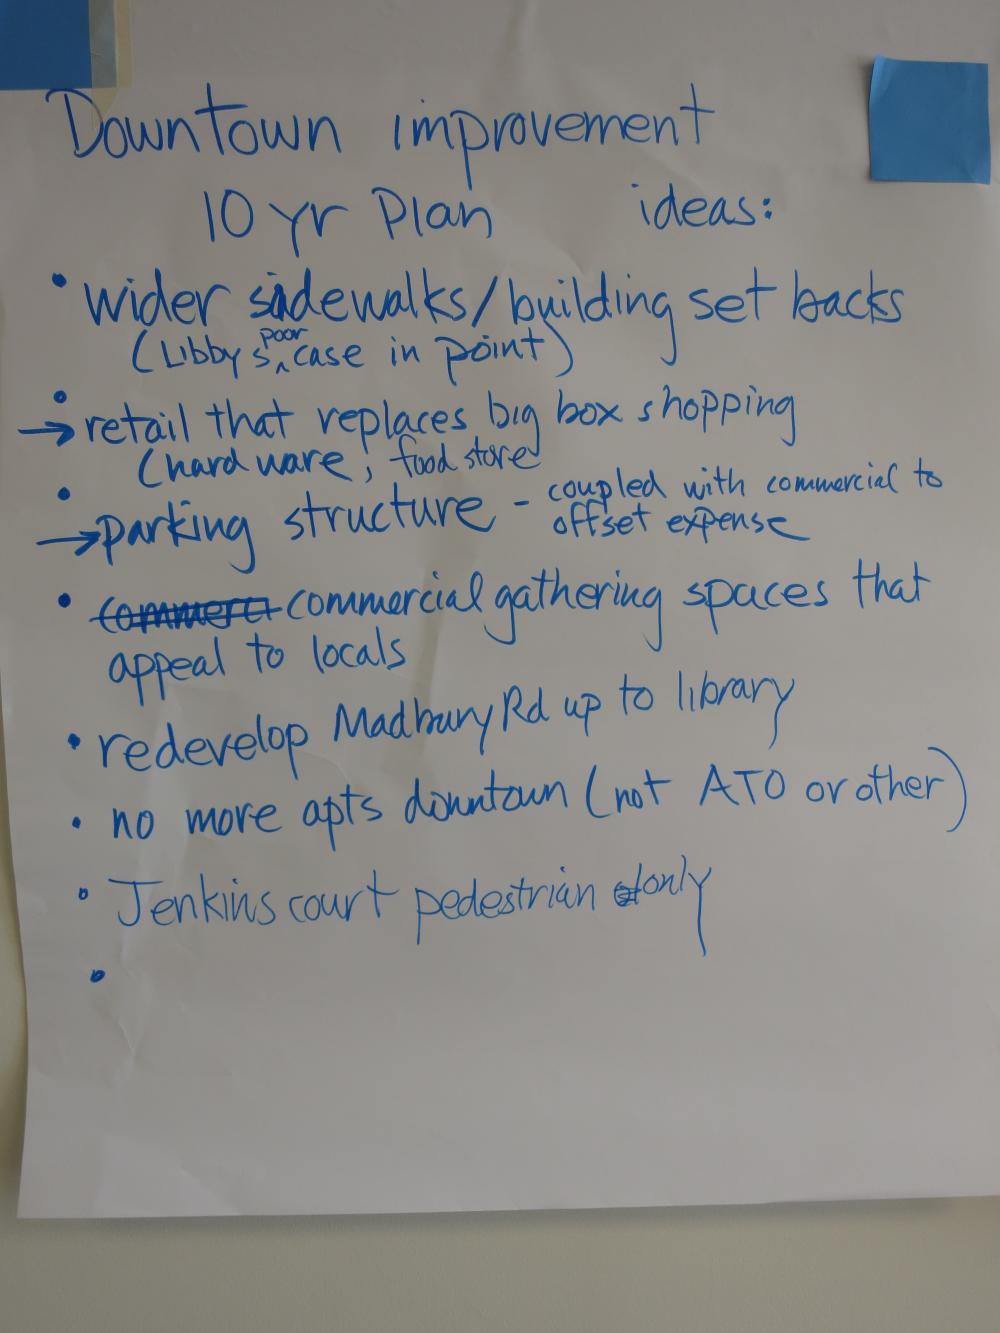 Downtown improvement
10 yr Plan ideas:
• wider sidewalks/building set backs
(Libbys poor case in point)
• → retail that replaces big box shopping
(hardware, food store
• → parking structure - coupled with commercial to
offset expense
• commerci commercial gathering spaces that
appeal to locals
• redevelop Madbury Rd up to library
• no more apts downtown (not ATO or other)
• Jenkins court pedestrian only
•